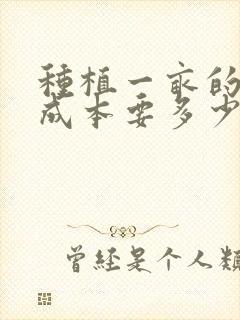 種植一亩的
成本要多少
曾经是个人類